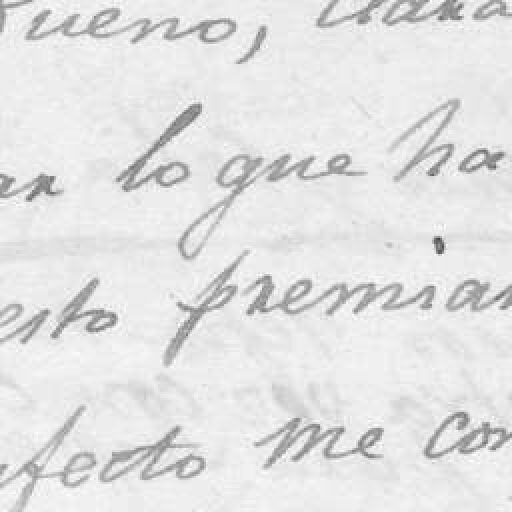 Bueno,
ar lo que ha
esto premiar
afecto me con